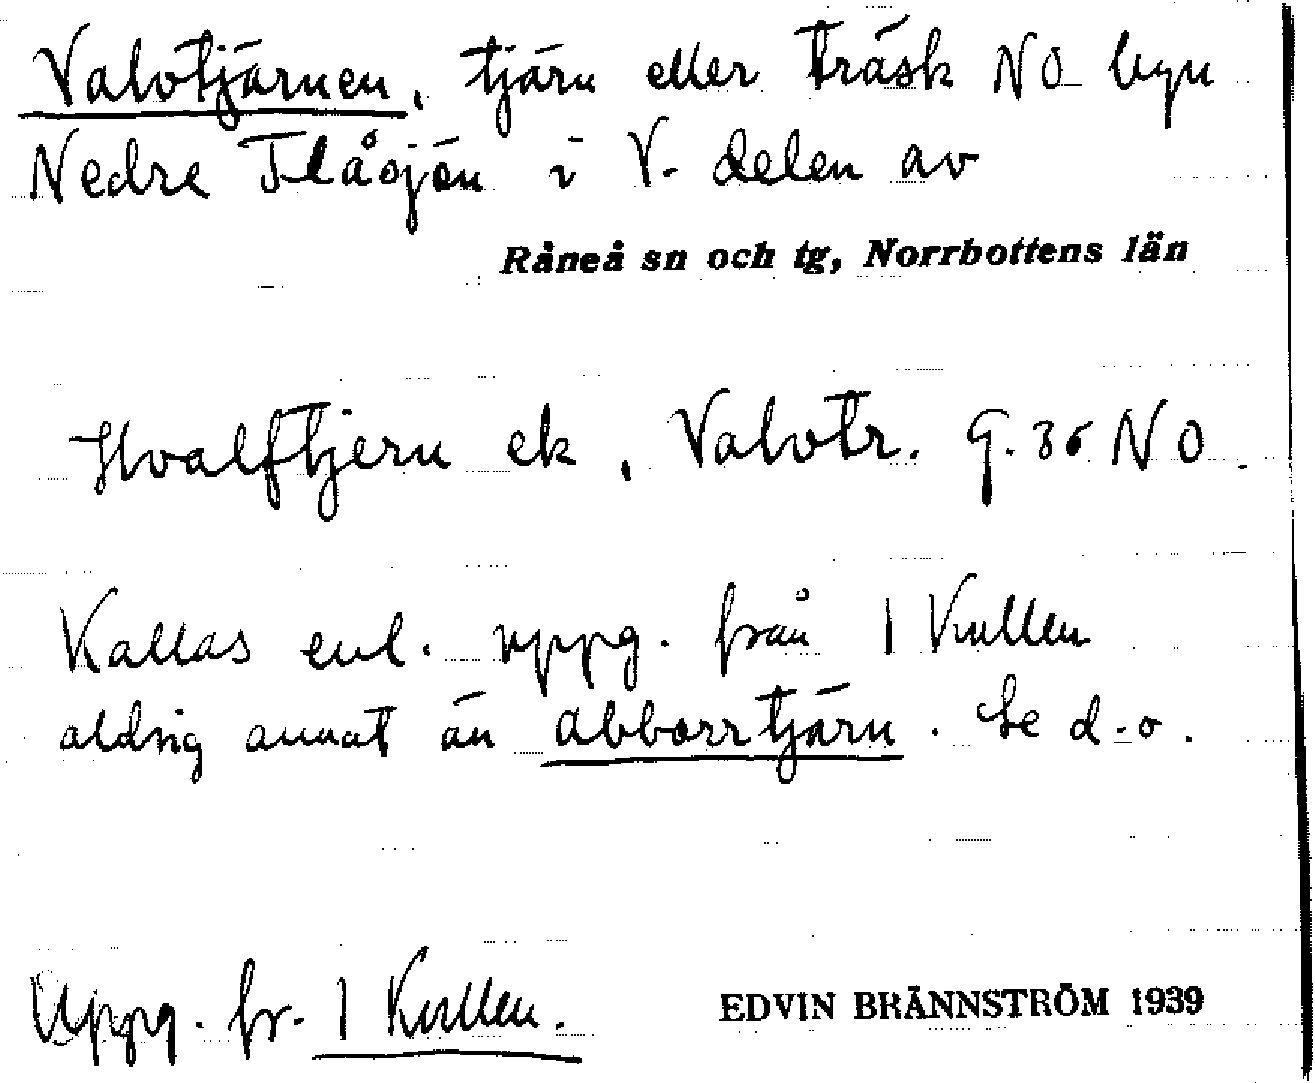 Valvtjärnen, tjärn eller träsk NO byn
Nedre Flåsjön i V. delen av
Råneå sn och tg, Norrbottens län
Hvalftjern ek, Valvtr. G. 36 NO.
Kallas enl. uppg. från 1 Kullen
aldrig annat än abborrtjärn. Se d.o.
Uppg. fr. 1 Kullen.
EDVIN BRÄNNSTRÖM 1939